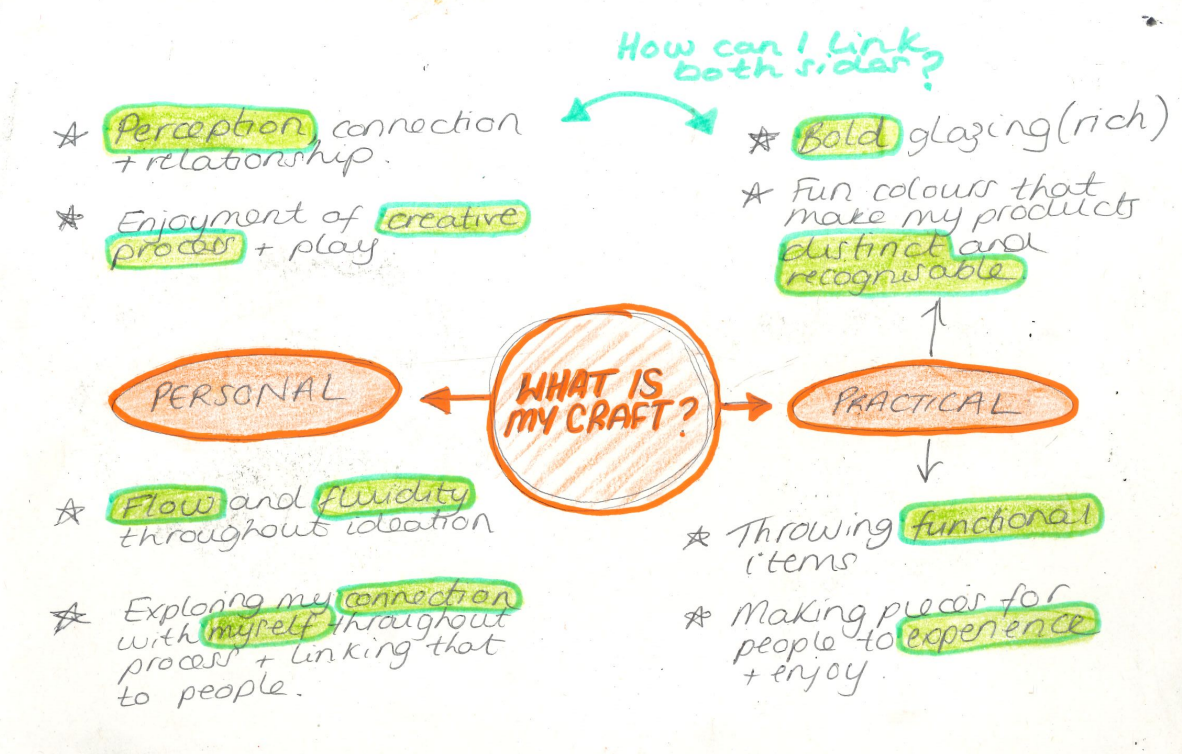 How can I link
both sides?
★ Perception, connection
+ relationship.
★ Enjoyment of creative
process + play
★ Bold glazing (rich)
★ Fun colours that
make my products
distinct and
recognisable.
PERSONAL
WHAT IS
MY CRAFT?
PRACTICAL
★ Flow and fluidity
throughout ideation
★ Exploring my connection
with myself throughout
process + linking that
to people.
★ Throwing functional
items
★ Making pieces for
people to experience
+ enjoy.